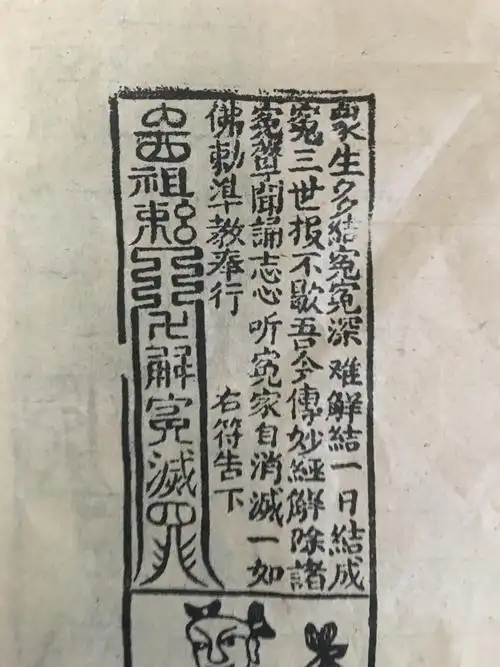 衆生多結冤冤深难解結一日結成
冤三世报不歇吾今傳妙經解除諸
冤聞誦志心听冤家自消滅一如
佛勅準教奉行
右符告下
祖勅
卍解冤滅